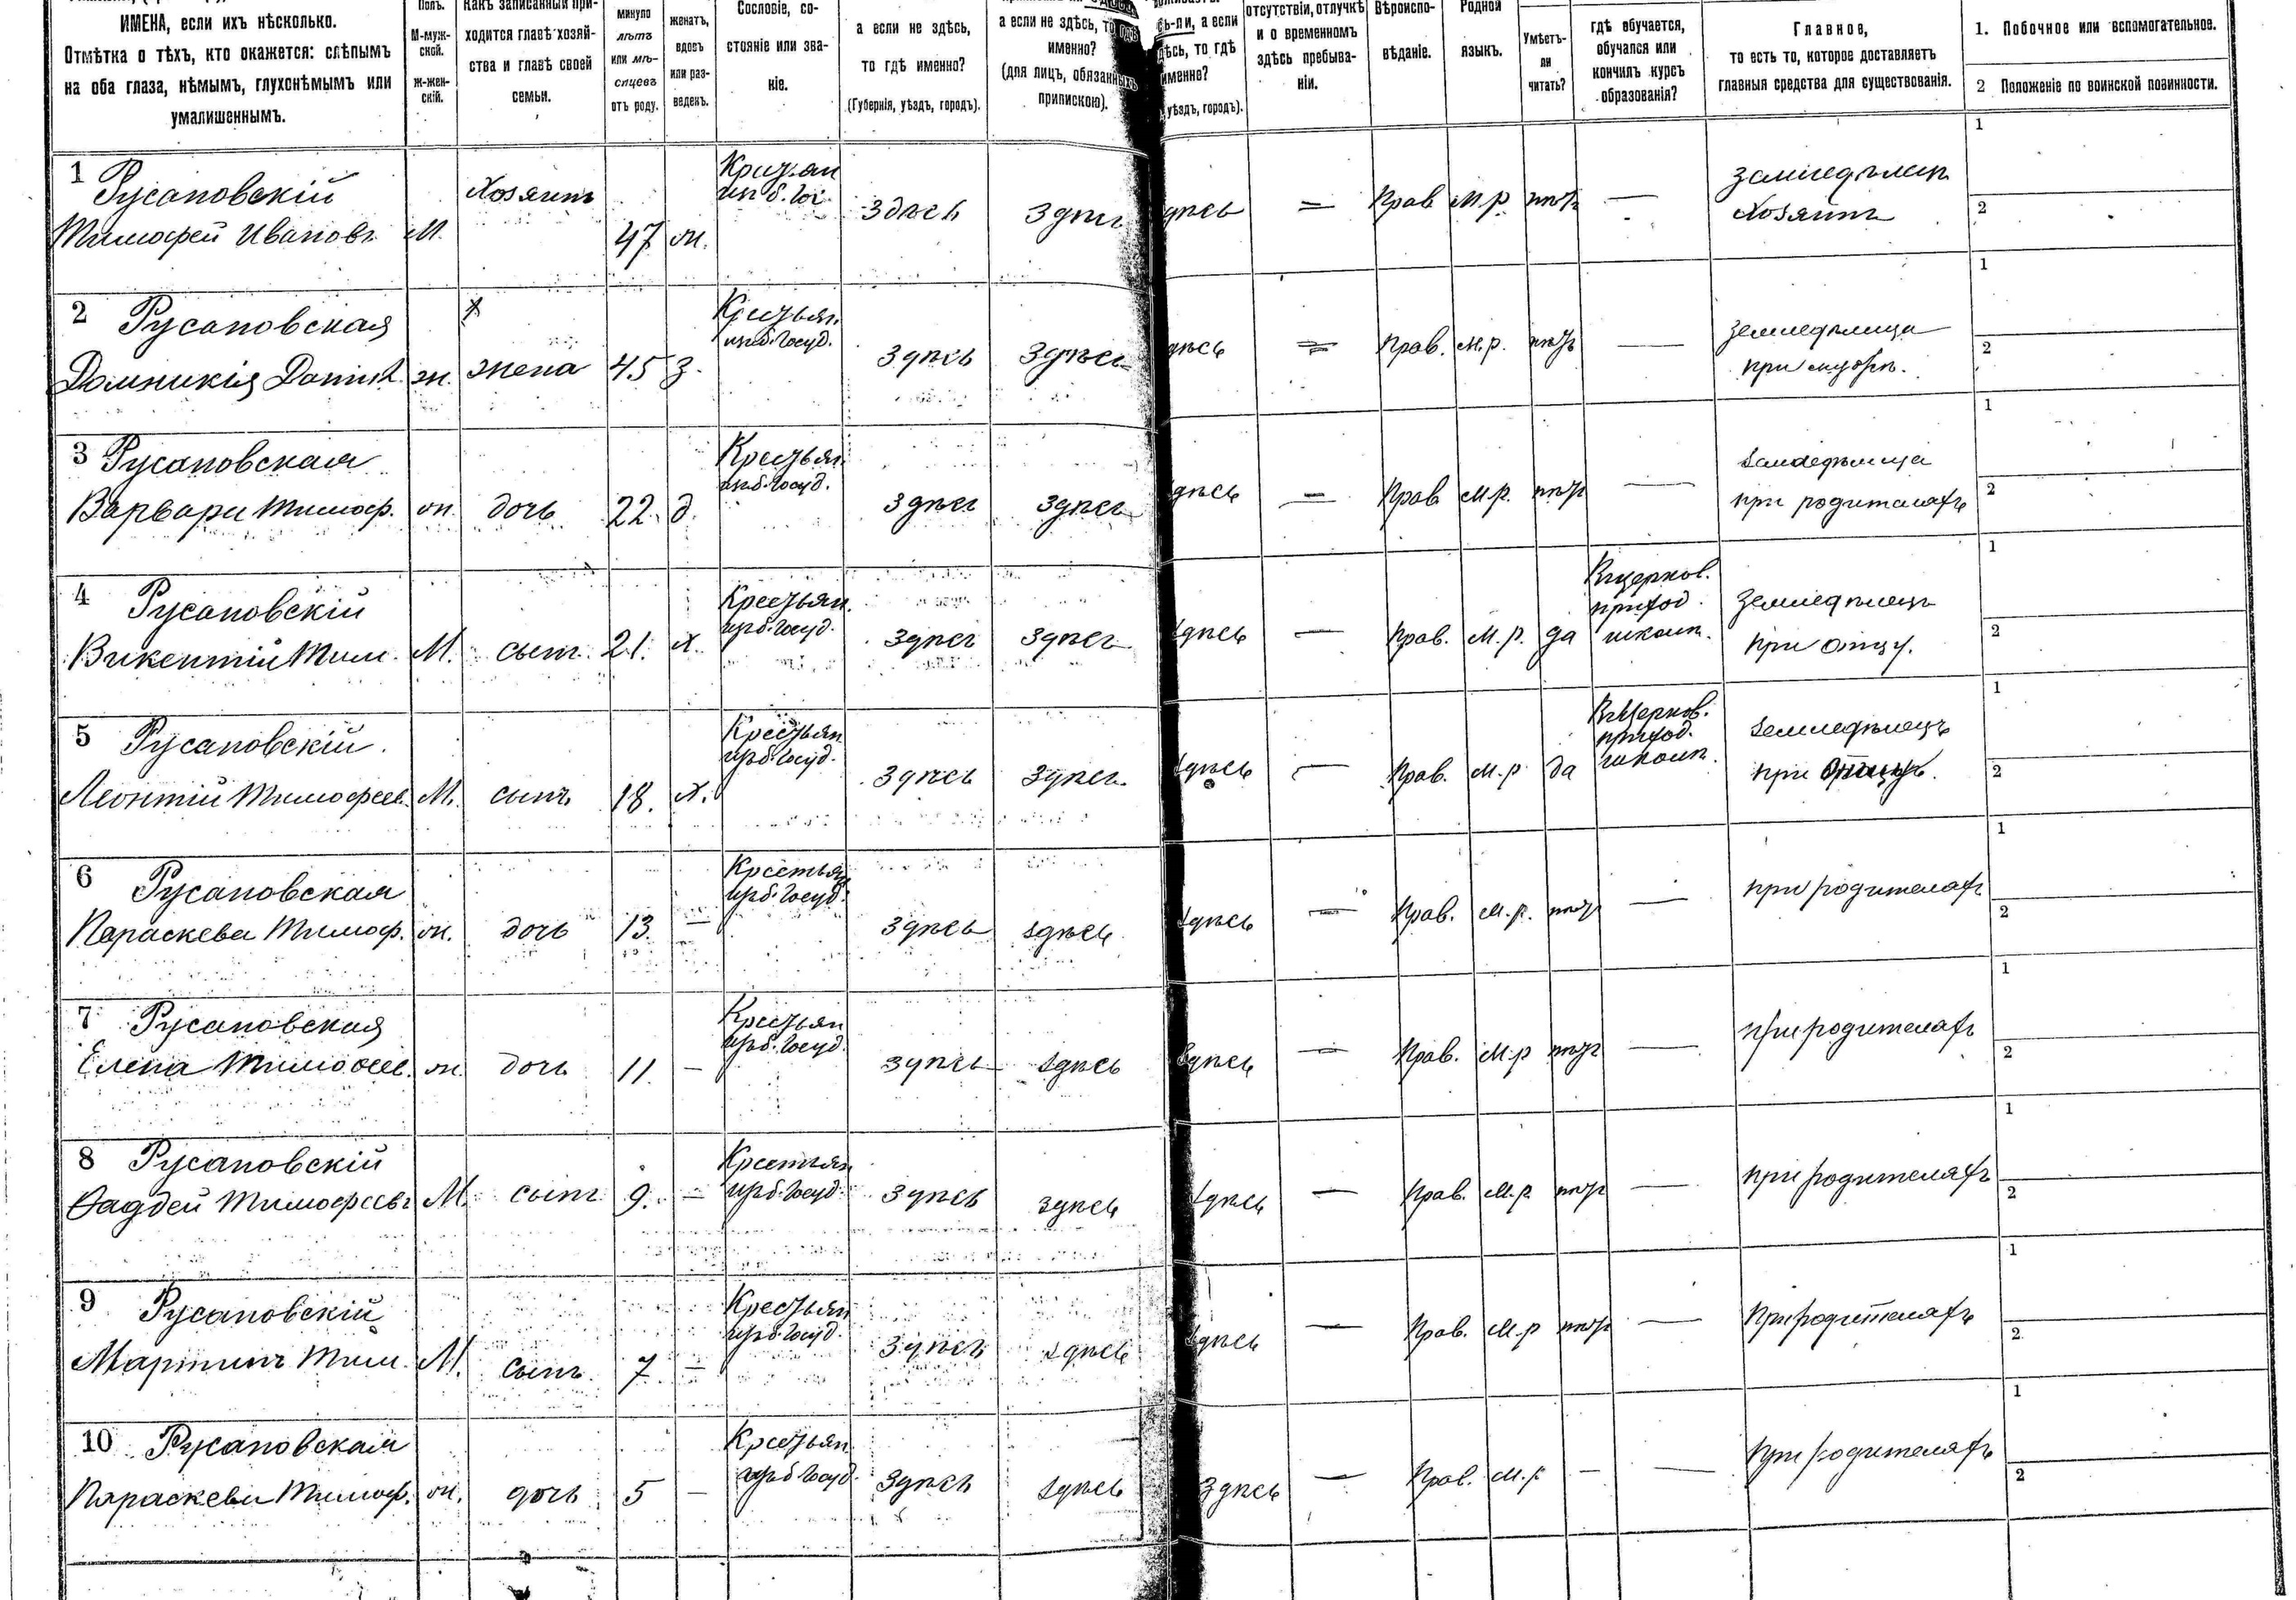 ИМЕНА, если ихъ нѣсколько.
Отмѣтка о тѣхъ, кто окажется: слѣпымъ
на оба глаза, нѣмымъ, глухонѣмымъ или
умалишеннымъ.
Полъ.
М-муж-
ской.
Ж-жен-
скій.
Какъ записанный при-
ходится главѣ хозяй-
ства и главѣ своей
семьи.
минуло
лѣтъ
или мѣ-
сяцевъ
отъ роду.
женатъ,
вдовъ
или раз-
веденъ.
Сословіе, со-
стояніе или зва-
ніе.
а если не здѣсь,
то гдѣ именно?
(Губернія, уѣздъ, городъ).
а если не здѣсь, то гдѣ
именно?
(для лицъ, обязанныхъ
припискою).
сь-ли, а если
дѣсь, то гдѣ
именно?
уѣздъ, городъ).
отсутствіи, отлучкѣ
и о временномъ
здѣсь пребыва-
ніи.
Вѣроиспо-
вѣданіе.
Родной
языкъ.
Умѣетъ-
ли
читать?
гдѣ обучается,
обучался или
кончилъ курсъ
образованія?
Главное,
то есть то, которое доставляетъ
главныя средства для существованія.
1. Побочное или вспомогательное.
2 Положеніе по воинской повинности.
1 Русановскій
Тимофей Ивановъ М. Хозяинъ 47 ж. здѣсь здѣсь дѣсь — Прав М.р. нѣтъ — Хозяинъ
1
2
2 Русановская
Домникія Данил. ж. жена 45 з. Крестьян. изъ б. госуд. здѣсь здѣсь дѣсь — Прав. м.р. нѣтъ — земледѣлица
при мужѣ.
1
2
3 Русановская
Варвара Тимоф. ж. дочь 22 д. Крестьян. изъ б. госуд. здѣсь здѣсь здѣсь — Прав М.р. нѣтъ — земледѣлица
при родителяхъ
1
2
4 Русановскій
Викентій Тим. М. сынъ 21. х. Крестьян. изъ б. госуд. здѣсь здѣсь здѣсь — Прав. М.р. да Въ церков.
приход.
школѣ. земледѣлецъ
при отцу.
1
2
5 Русановскій.
Леонтій Тимофеев. М. сынъ 18. х. Крестьян изъ б. госуд. здѣсь здѣсь здѣсь — Прав. м.р. да Въ Церков.
приход.
школѣ. земледѣлецъ
при
1
2
6 Русановская
Параскева Тимоф. ж. дочь 13. — Крестьян изъ б. госуд. здѣсь здѣсь здѣсь — Прав. м.р. нѣтъ — при родителяхъ
1
2
7 Русановская
Елена Тимофеев. ж. дочь 11. — Крестьян изъ б. госуд. здѣсь здѣсь здѣсь — Прав. М.р нѣтъ — при родителяхъ
1
2
8 Русановскій
Фаддей Тимофеевъ М. сынъ 9. — Крестьян изъ б. госуд. здѣсь здѣсь здѣсь — Прав. М.р. нѣтъ — при родителяхъ
1
2
9 Русановскій
Мартинъ Тим. М. сынъ 7 — Крестьян изъ б. госуд. здѣсь здѣсь здѣсь — Прав. М.р нѣтъ — При родителяхъ
1
2
10 Русановская
Параскева Тимоф. ж. дочь 5 — Крестьян изъ б. госуд. здѣсь здѣсь здѣсь — Прав. М.р — — При родителяхъ
1
2